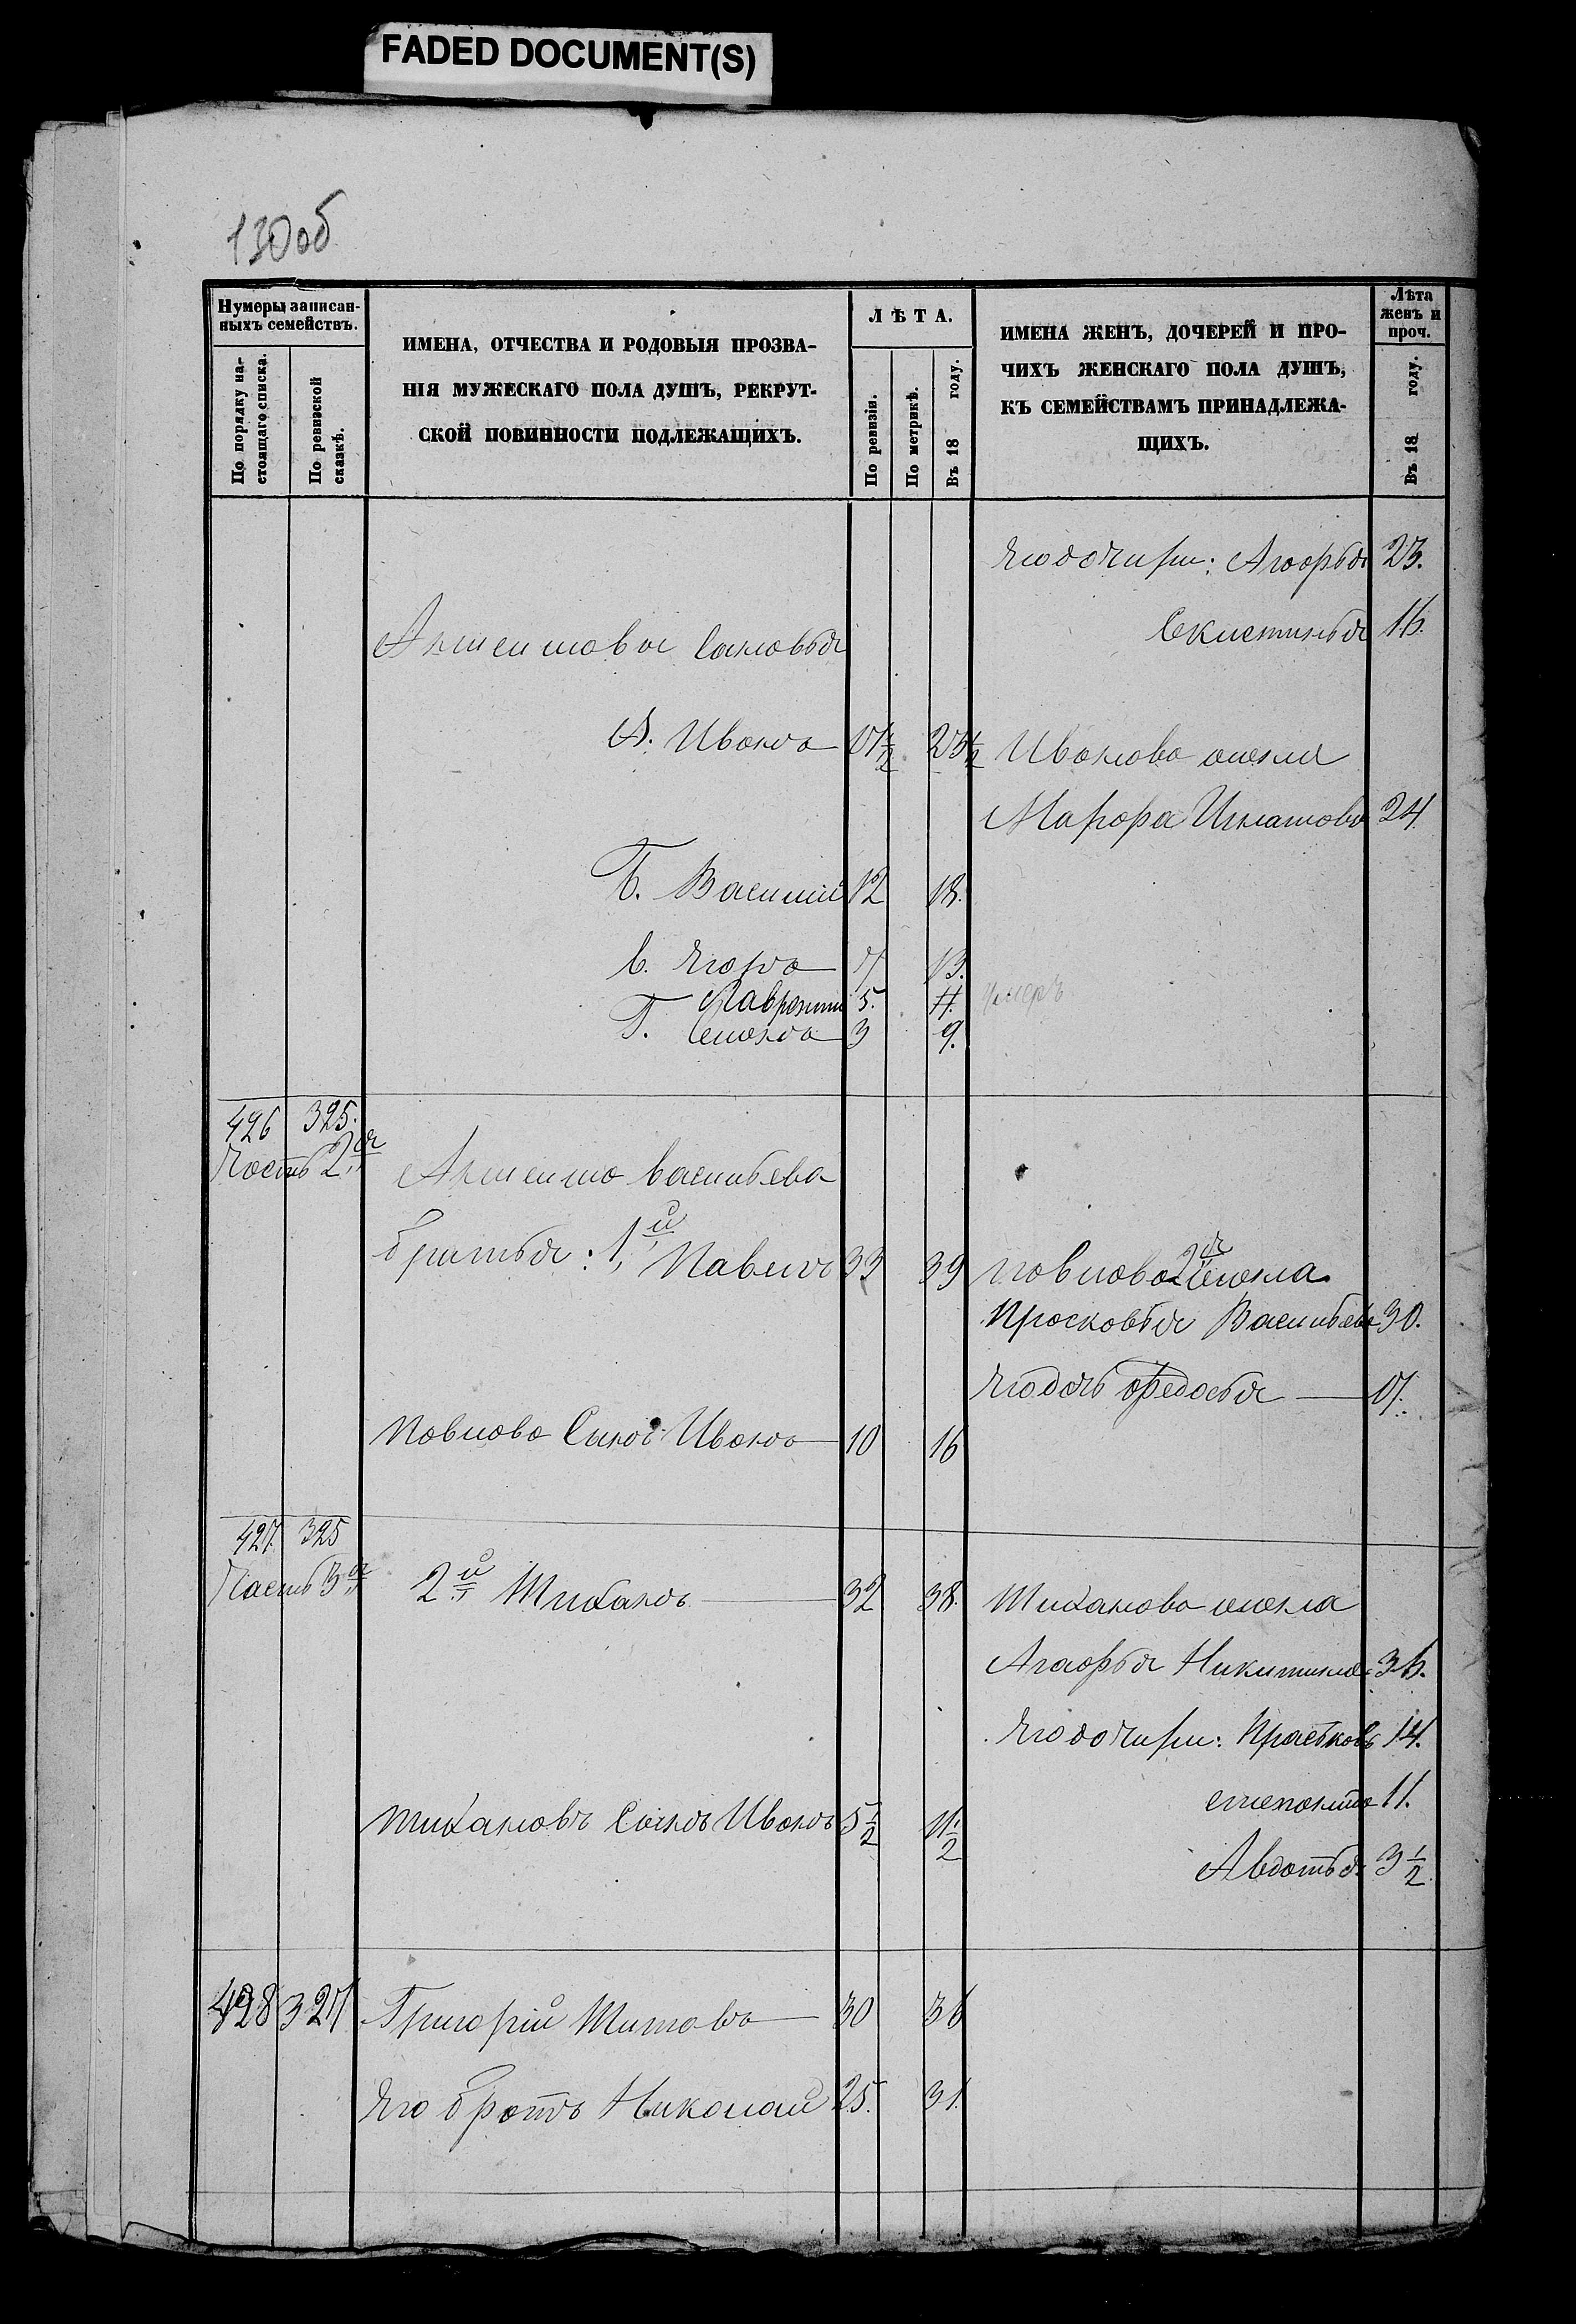 FADED DOCUMENT(S)
130об
Нумеры записан-
ныхъ семействъ.
По порядку на-
стоящаго списка.
По ревизской
сказкѣ.
ИМЕНА, ОТЧЕСТВА И РОДОВЫЯ ПРОЗВА-
НІЯ МУЖЕСКАГО ПОЛА ДУШЪ, РЕКРУТ-
СКОЙ ПОВИННОСТИ ПОДЛЕЖАЩИХЪ.
ЛѢТА.
По ревизіи.
По метрикѣ.
Въ 18 году.
ИМЕНА ЖЕНЪ, ДОЧЕРЕЙ И ПРО-
ЧИХЪ ЖЕНСКАГО ПОЛА ДУШЪ,
КЪ СЕМЕЙСТВАМЪ ПРИНАДЛЕЖА-
ЩИХЪ.
Лѣта
женъ и
проч.
Въ 18 году.
Его дочири: Агафья 23.
Секлетинья 16.
сыновья
А. Иванъ 17½ 23½ Иванова жена
Марфа Игнатова 24.
Б. Василий 12 18.
В. Егоръ 7 13.
Лаврентий 5. 11. умеръ
Г. Семенъ 3 9.
426 325.
Часть 2я
Васильева
братья: 1й Павелъ 33 39 Павлова 2я жена
Просковья Васильева 30.
Его дочь Федосья 17.
Павлова Сынъ Иванъ 10 16
427. 325
Часть 3я
2й Тихонъ 32 38. Тиханова жена
Агафья Никитина 36.
Его дочири: Прасковь 14.
Степанида 11.
Тихановъ Сынъ Иванъ 5½ 11½
Авдотья 3½
428 327 Григорій Титовъ 30 36
Его братъ Николай 25. 31.